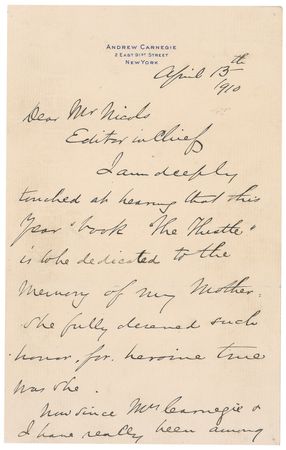 ANDREW CARNEGIE
2 EAST 91ST STREET
NEW YORK
April 13th
1910
Dear Mr Nicols
Editor in Chief
I am deeply
touched at hearing that this
Year book "The Thistle"
is to be dedicated to the
Memory of my Mother.
She fully deserved such
honor, for, heroine true
was she.
Now since Mrs Carnegie &
I have really been among